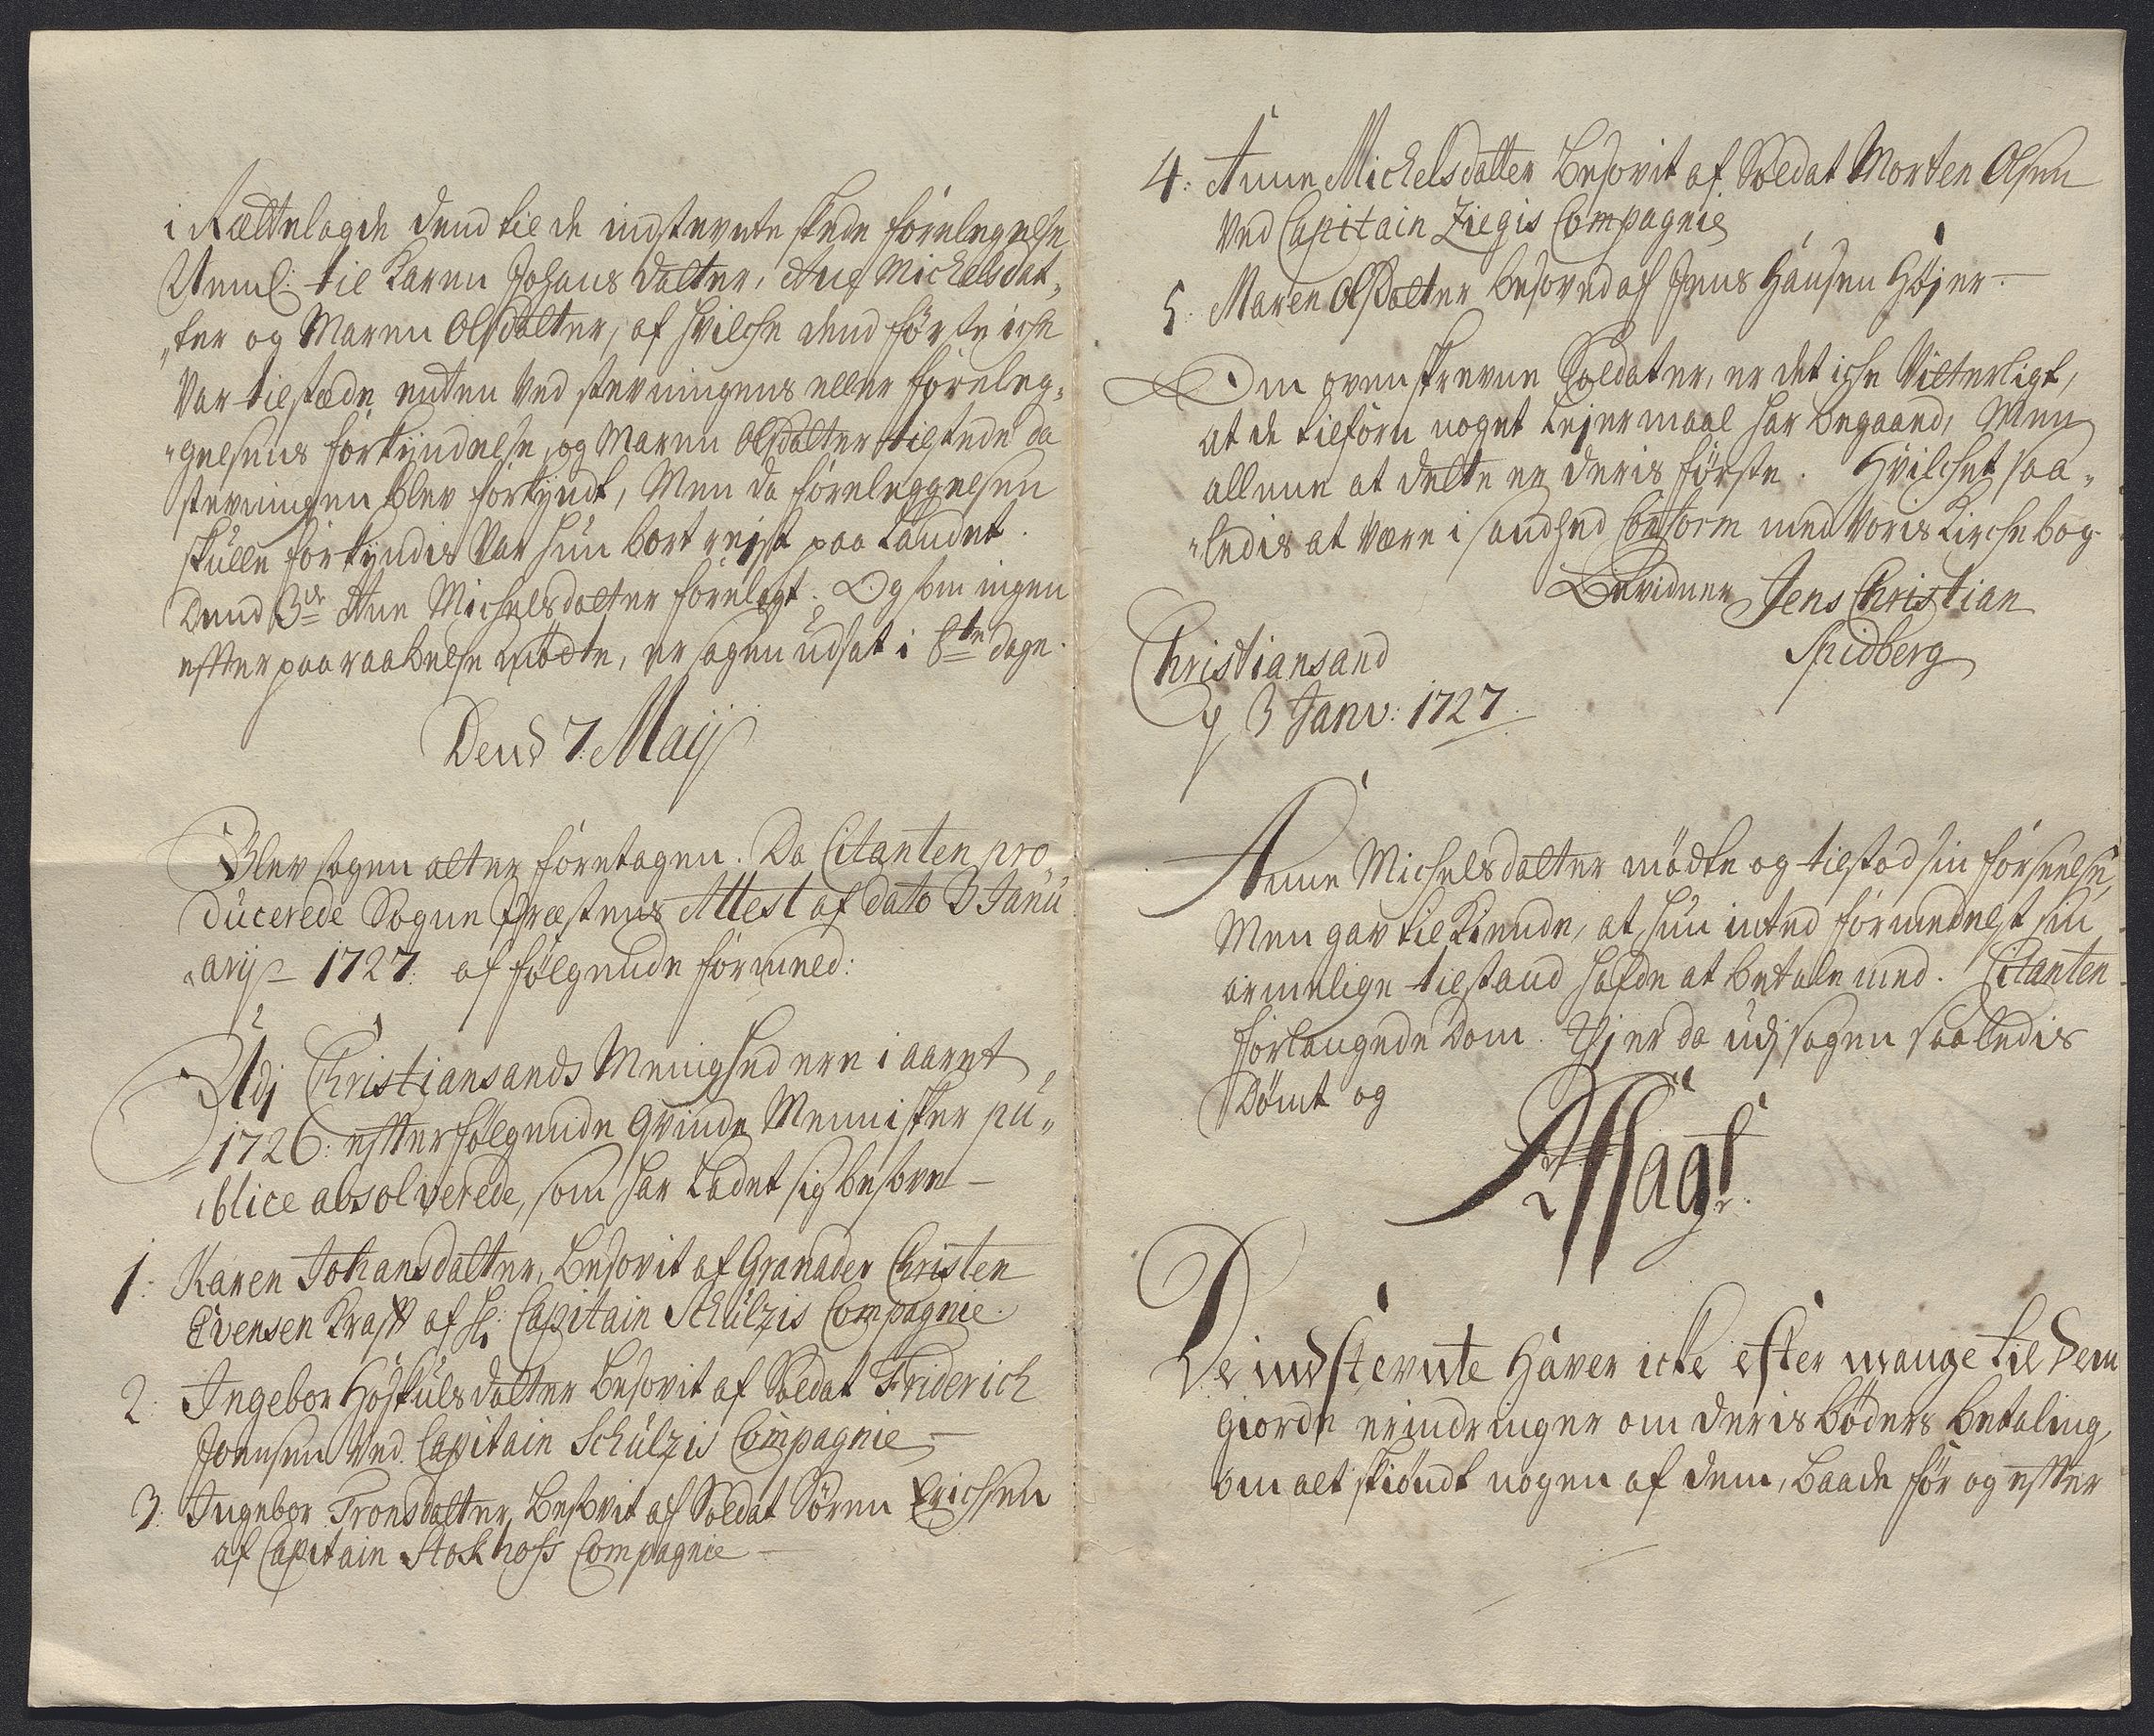 i Rættelagde dend til de indstevnte skede forelegelse
Neml: til Karen Johans datter, Ane Michelsdat„
„ter og Maren Olsdatter, af hvilche dend første iche
var tilstæde enten ved stevningens eller foreleg„
„gelsens forkyndelse, og Maren Olsdatter tilstede da
stevningen blev forkyndt, Men da foreleggelsen
skulle forkyndis var hun bort reist paa Landet.
Dend 3de Ane Michelsdatter forelagt. Og som ingen
efter paaraabelse mødte, er sagen udsat i 8te dage.
Dend 7. Maij
Blev sagen atter foretagen. Da Citanten pro„
ducerede Sogne Præstens Attest af dato 3 Janu
„arij 1727. af følgende formeld:
Udj Christiansands Menighed ere i aaret
1726: effterfølgende Qvinde Mennisker pu„
„blice absolverede, som har Ladet sig besove
1: Karen Johansdatter, Besovit af Granader Christen
Evensen Krafft af Hr: Capitain Schultzis Compagnie.
2. Ingebor Høskulsdatter Besovit af Soldat Friderich
Joensen ved Capitain Schultzis Compagnie
3. Ingebor Tronsdatter, Besovit af Soldat Søren Erichsen
af Capitain Stokhofs Compagnie
4: Anne Michelsdatter Besovit af Soldat Morten Olsen
ved Capitain Ziegis Compagnie
5: Maren Olsdatter besoved af Jens Hansen Højer
Om ovenskrevne Soldater, er det iche vitterligt,
at de tilforn noget Leiermaal har begaaed, Men
allene at dette er deris første. Hvilchet saa„
„ledis at være i sandhed Conform med voris Kirchebog
Bevidner Jens Christian
Spidberg
Christiansand
d 3 Janv: 1727.
Anne Michelsdatter mødte og tilstod sin forseelse,
Men gav tilkiende, at hun inted formedelst sin
armelige tilstand hafde at betale med. Citanten
forlangede Dom. Thj er da udj sagen saaledis
Dømt og
Affsagt.
De indstevnte haver icke efter mange til dem
giorde erindringer om deris bøders betaling,
om alt skiøndt nogen af dem, baade før og efter